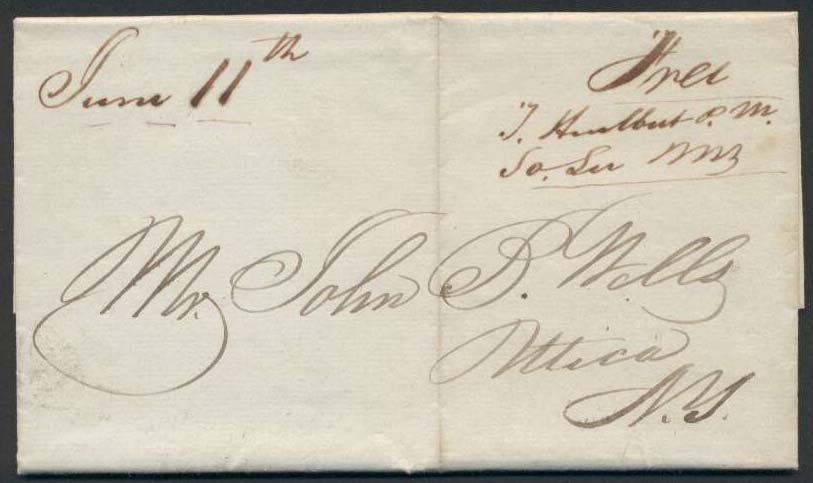 June 11th
Free
T. Hurlbut P.M.
So. Lee Ms
Mr. John P. Wells
Uttica
N.Y.